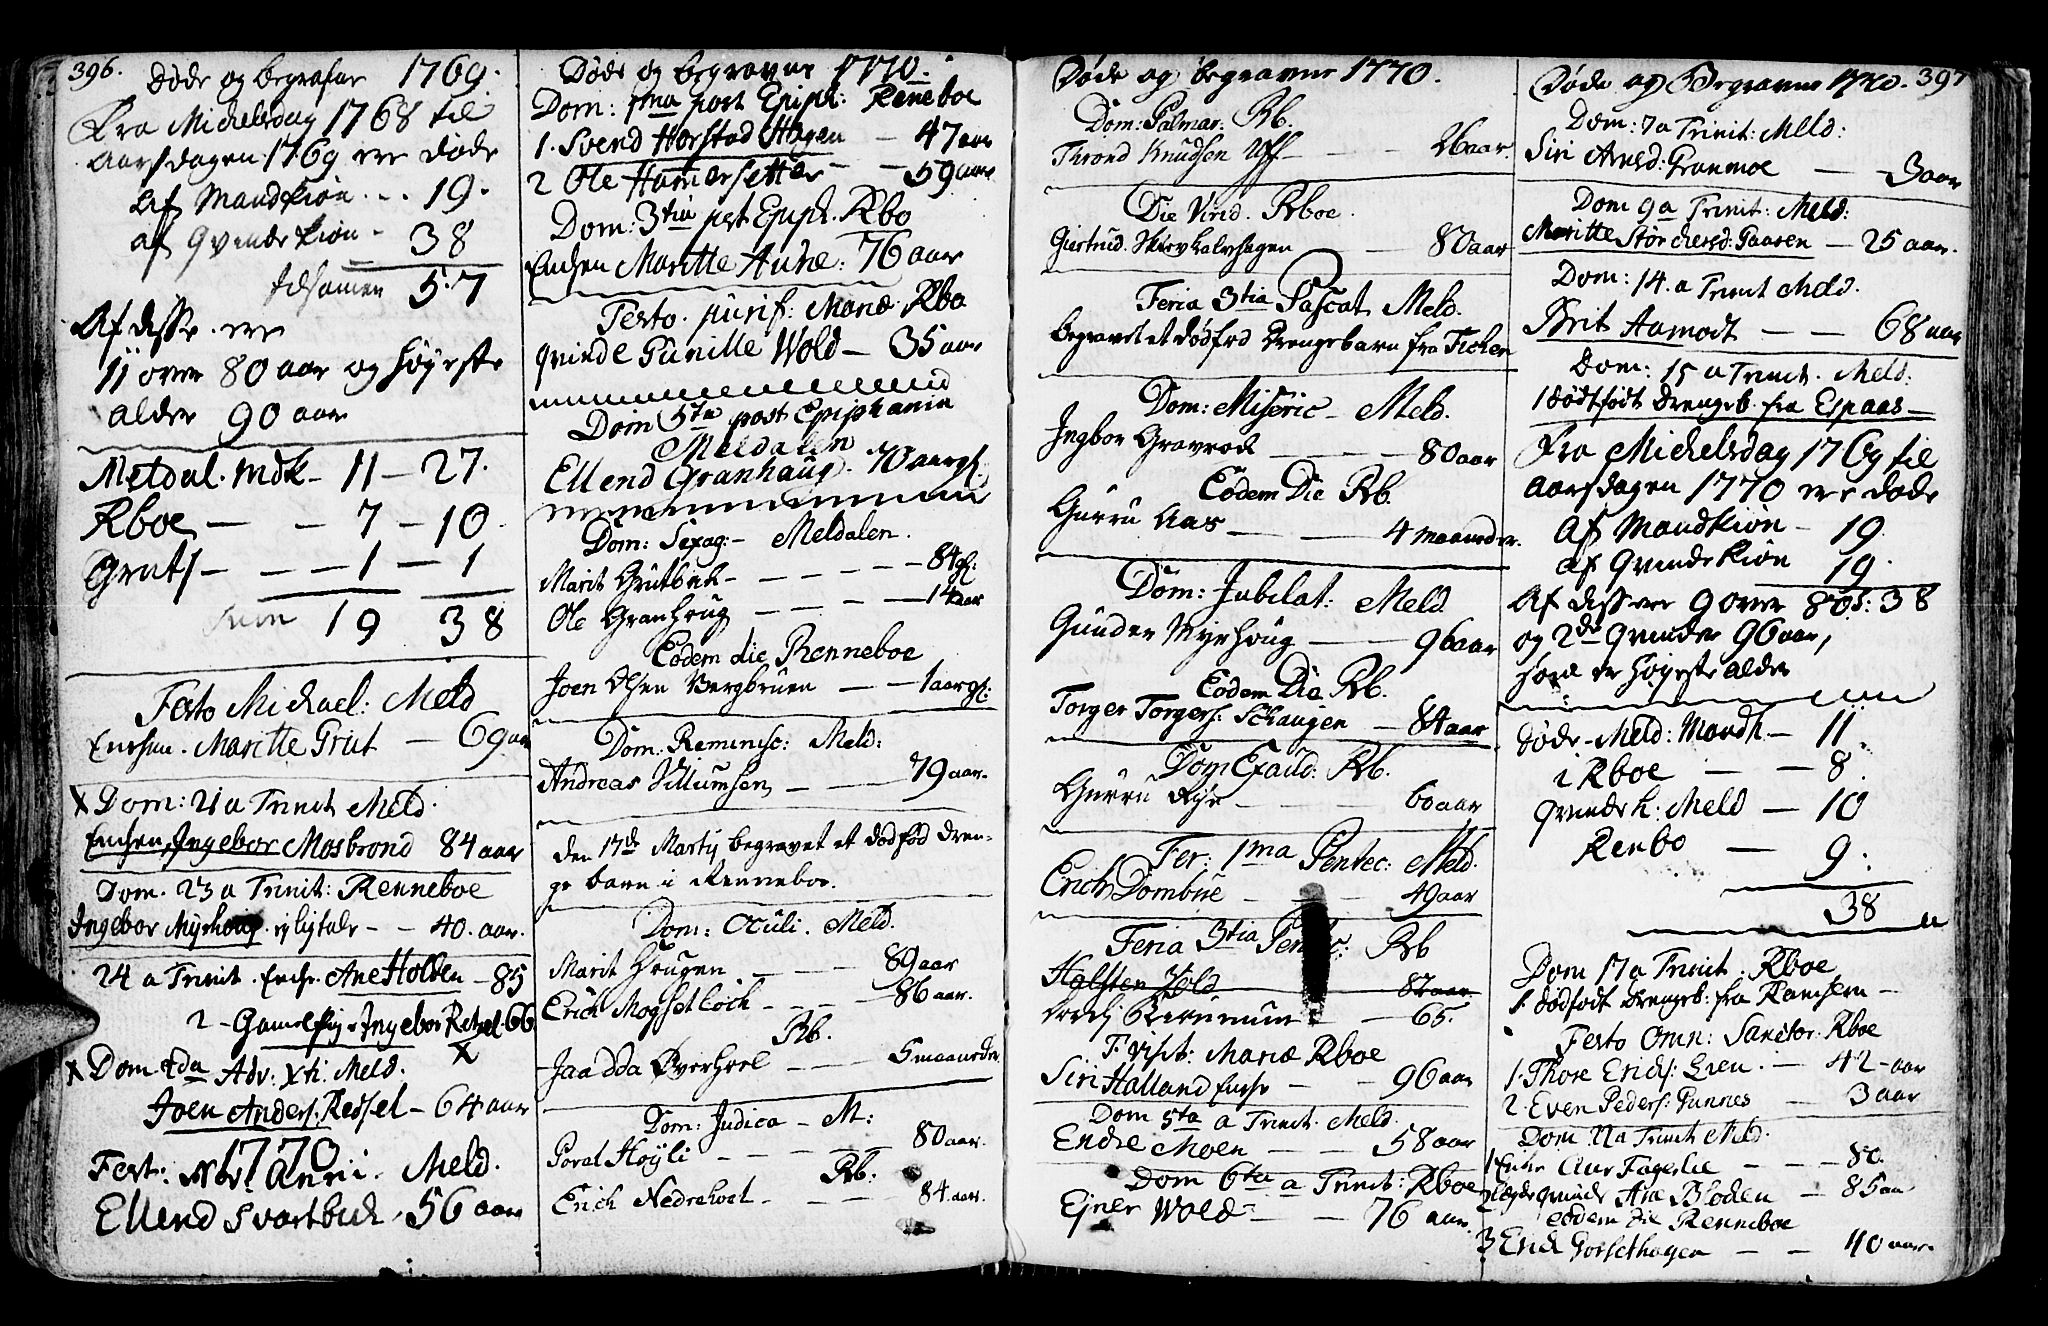 396.
Døde og begrafne 1769.
Fra Michelsdag 1768 til
Aarsdagen 1769 ere døde
Af Mandkiøn - - 19.
af Qvindekiøn - 38
Tilsamen 57
Af disse ere
11 over 80 aar og høyeste
alder 90 aar
Meldal. Mdk - 11 - 27.
Rboe - - 7 - 10.
Grut - - - 1 - 1
Sum 19 38
Festo Michael: Meld
Enchen. Maritte Grut - 69 aar
x Dom: 21 a Trinit Meld.
Enchen Ingebor Mosbrond 84 aar
Dom. 23 a Trinit: Renneboe
Ingebor Myrhoug - - 40. aar.
24 a Trinit. Ane Holden - 85
2 - Ingebor 66
x Dom 2da Adv: Xti. Meld.
Joen Anders: Ressel - 64 aar
1770
Fest: Nov: Anni. Meld.
Ellend Svartbech - 56 aar
Døde og begravne 1770.
Dom: 1ma post Epiph: Renneboe
1. Svend Horstad Hagen - 47 aar
2 Ole Hamersetter - - 59 aar
Dom: 3tia post Epiph. Rbo
Enchen Maritte Aune: 76 aar
Festo. purif: Mariæ Rbo
qvinde Gunille Wold - 35 aar
Dom 5ta post Epiphania
Meldalen
Ellend Granhaug - 70 aar gl.
Dom: Sexag: - Meldalen.
Marit Grutbek - - - - 84 gl:
Ole Granhoug - - - - 14 aar
Eodem die Renneboe
Joen Olsen Bergbruen - - 1 aar gl:
Dom. Reminisc: Meld:
Andreas Villumsen - - 79 aar.
den 17de Martij begravet et dødfød dren-
ge barn i Renneboe.
Dom: Oculi. Meld.
Marit Hougen - - - 89 aar
Erich Mogset - - - 86 aar.
Rb.
Jaadda Øverhoel - - - 5 maaneder
Dom: Judica - M:
Poral Høyli - - - - 80 aar.
Rb:
Erich Nedrehoel - - - 84. aar.
Døde og begravne 1770.
Dom: Palmar: Rb.
Thrond Knudsen Uff - - - 26 aar.
Die Virid. Rboe.
Giertrud. - - 80 aar
Feria 3tia Pascat Meld.
begravet et dødfød Drengebarn fra
Dom: Miseric - Meld.
Ingbor Gravrok - - - - 80 aar
Eodem Die Rb.
Gurru Aas - - - - 4 maaneder.
Dom: Jubilat: Meld
Gunder Myrhoug - - - 96 aar
Eodem Die Rb.
Torger Torgers: Schaugen - 84 aar
Dom Exaud: Rb.
Gurru Rye - - - - 60 aar
Fer: 1ma Pentec: Meld.
Erich Dombue - - - 49 aar
Feria 3tia Rb
Halsten Vold 82 aar
- 65.
F. Visit: Mariæ Rboe
Siri Halland - - 96 aar
Dom 5ta a Trinit. Meld.
Endre Moen - - - 58 aar
Dom 6ta a Trinit: Rboe
Ejner Wold - - 76 aar
397
Døde og Begravne 1770.
Dom: 7 a Trinit: Meld:
Siri Arnsd: Granmoe - 3 aar
Dom 9 a Trinit: Meld:
Maritte Størchersd: Gaasen - 25 aar.
Dom: 14. a Trinit Meld.
Brit Aamodt - - - 68 aar
Dom: 15 a Trinit. Meld:
1 dødfødt Drengeb. fra Espaas -
Fra Michelsdag 1769 til
Aarsdagen 1770 ere døde
Af Mandkiøn - 19.
af Qvindekiøn 19.
Af disse ere 9 over 80 S: 38
og 2de Qvinder 96 aar,
som er høyeste alder
døde - Meld: Mandk - 11.
i Rboe - - 8.
Qvindek: Meld - 10
Renbo - 9:
38
Dom 17 a Trinit. Rboe
1 dødfødt Drengeb. fra Ramsem -
Festo Omn: Sanctor: Rboe
1. Thore Erichs: Even. - 42 - aar
2. Even Peders: Gunnes - 3 aar
Dom Trinit Meld.
1 Enke Ane Fagerlie - - - 80.
2 Lægdeqvinde Ane Bloden - 85 aar
eodem Die Renneboe
3 Erich Gorsethagen - - 40 aar.